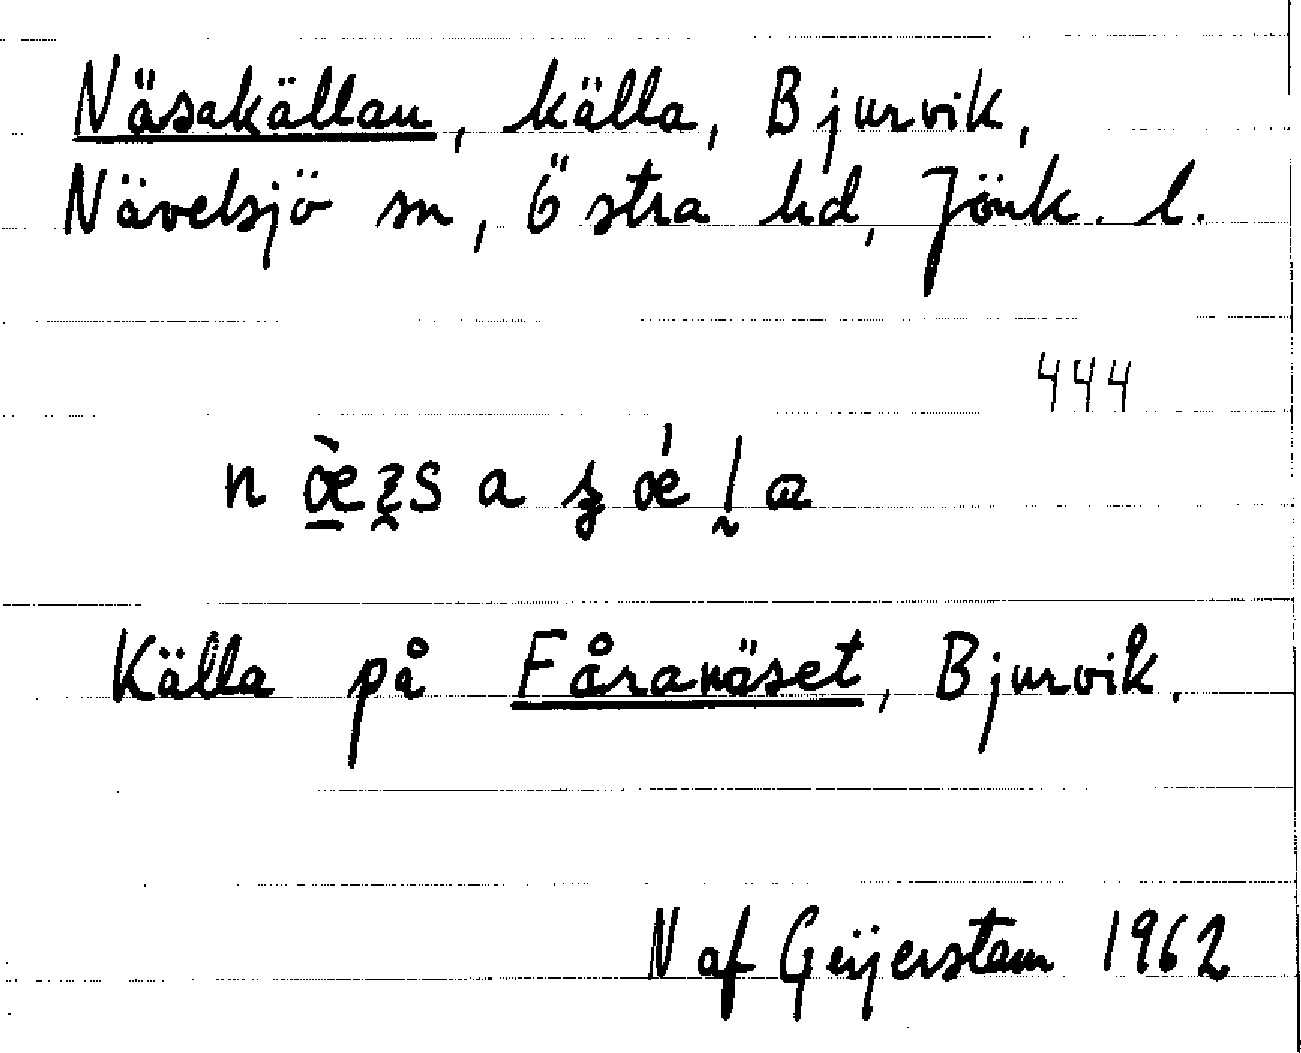 Näsakällan, källa, Bjurvik,
Nävelsjö sn, Östra hd, Jönk. l.
444
Källa på Fåranäset, Bjurvik.
N af Geijerstam 1962